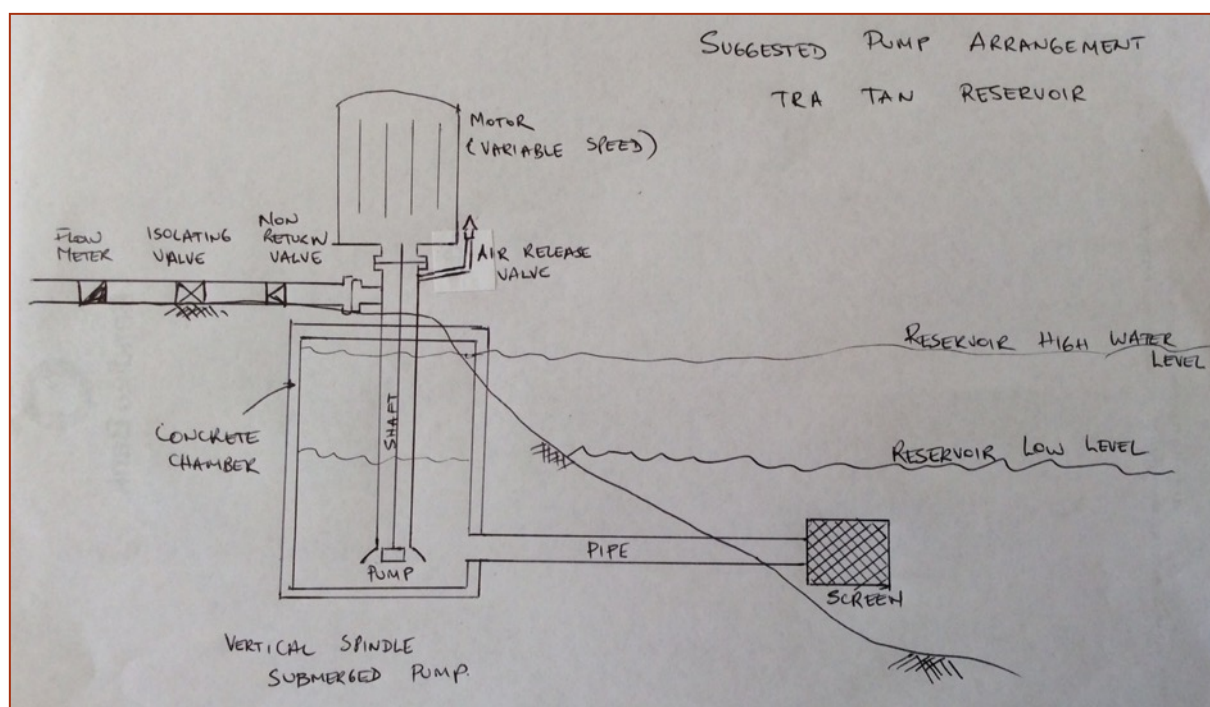 SUGGESTED PUMP ARRANGEMENT
TRA TAN RESERVOIR
MOTOR
(VARIABLE SPEED)
FLOW
METER
ISOLATING
VALVE
NON
RETURN
VALVE
AIR RELEASE
VALVE
RESERVOIR HIGH WATER
LEVEL
CONCRETE
CHAMBER
SHAFT
RESERVOIR LOW LEVEL
PIPE
PUMP
SCREEN
VERTICAL SPINDLE
SUBMERGED PUMP.